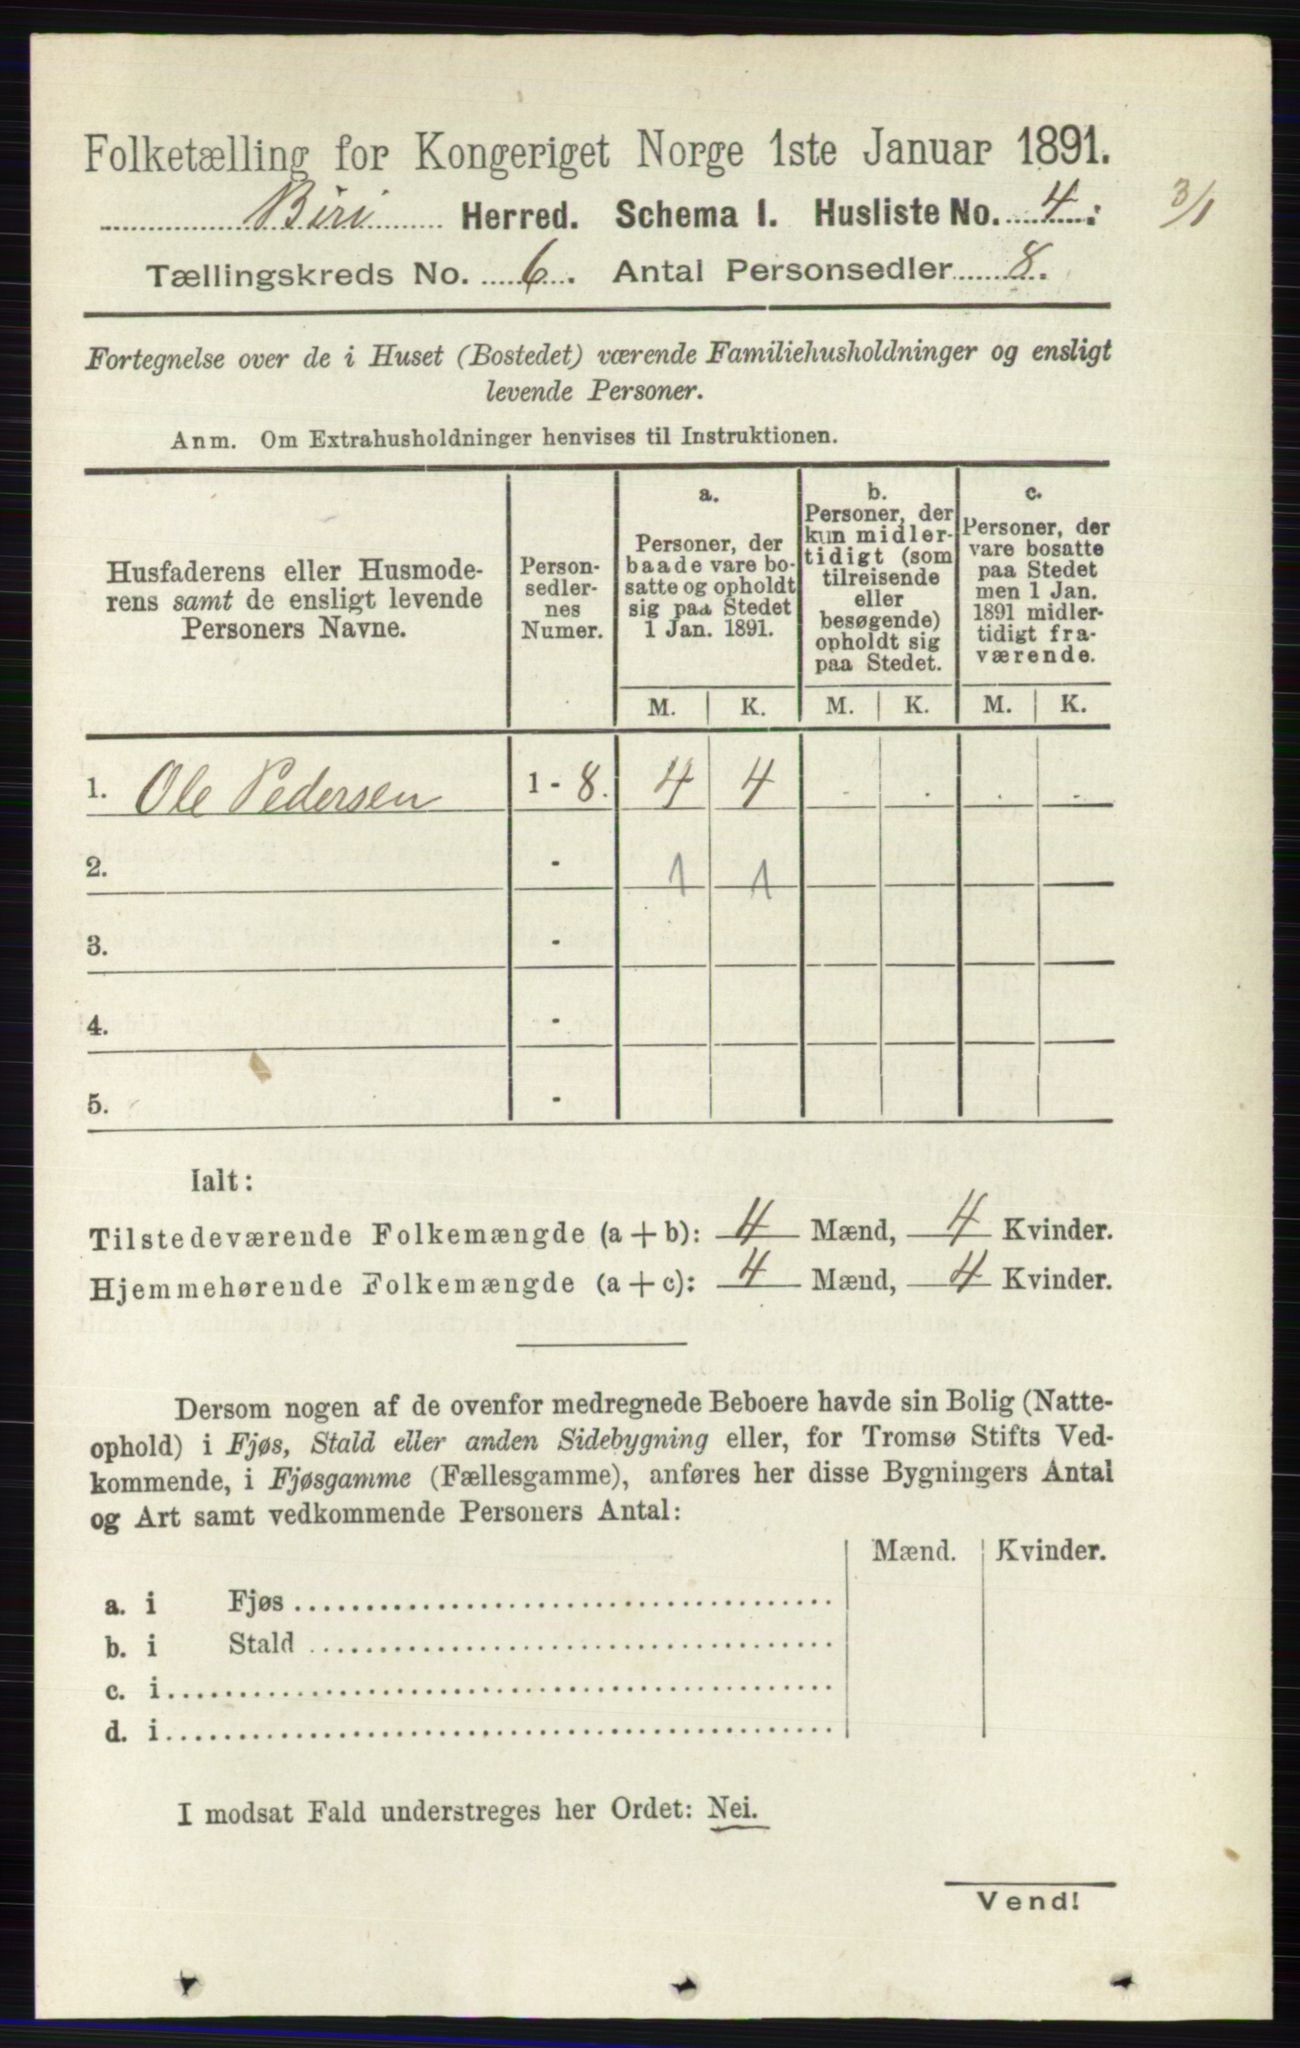 Folketælling for Kongeriget Norge 1ste Januar 1891.
Biri Herred. Schema I. Husliste No. 4.
3/1
Tællingskreds No. 6. Antal Personsedler 8.
Fortegnelse over de i Huset (Bostedet) værende Familiehusholdninger og ensligt
levende Personer.
Anm. Om Extrahusholdninger henvises til Instruktionen.
Husfaderens eller Husmode-
rens samt de ensligt levende
Personers Navne.
Person-
sedler-
nes
Numer.
a.
Personer, der
baade vare bo-
satte og opholdt
sig paa Stedet
1 Jan. 1891.
b.
Personer, der
kun midler-
tidigt (som
tilreisende
eller
besøgende)
opholdt sig
paa Stedet.
c.
Personer, der
vare bosatte
paa Stedet
men 1 Jan.
1891 midler-
tidigt fra-
værende.
M. K. M. K. M. K.
1. Ole Pedersen 1 - 8. 4 4 . . . .
2. - 1 1
3. -
4. -
5. -
Ialt:
Tilstedeværende Folkemængde (a + b): 4 Mænd, 4 Kvinder.
Hjemmehørende Folkemængde (a + c): 4 Mænd, 4 Kvinder.
Dersom nogen af de ovenfor medregnede Beboere havde sin Bolig (Natte-
ophold) i Fjøs, Stald eller anden Sidebygning eller, for Tromsø Stifts Ved-
kommende, i Fjøsgamme (Fællesgamme), anføres her disse Bygningers Antal
og Art samt vedkommende Personers Antal:
Mænd. Kvinder.
a. i Fjøs
b. i Stald
c. i
d. i
I modsat Fald understreges her Ordet: Nei.
Vend!